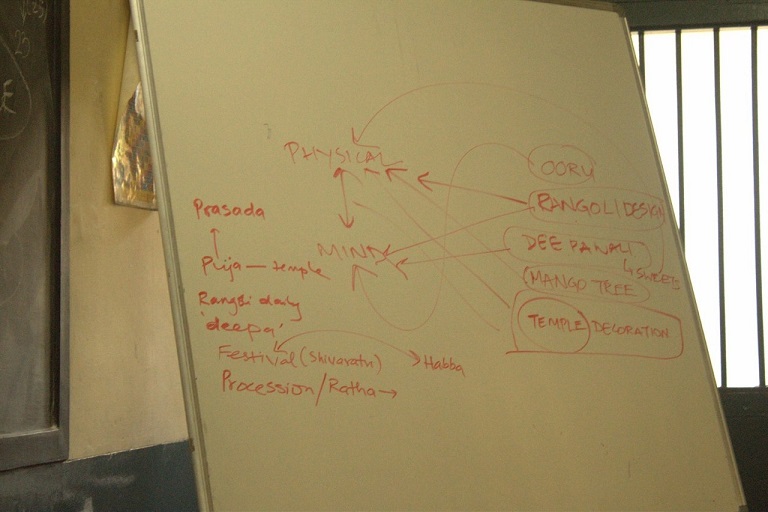 PHYSICAL
OORU
RANGOLI DESIGN
DEEPAWALI
↳ SWEETS
MANGO TREE
TEMPLE DECORATION
MIND
Prasada
Puja — temple
Rangoli daily
'deepa'
Festival (Shivaratri)
Habba
Procession/Ratha →